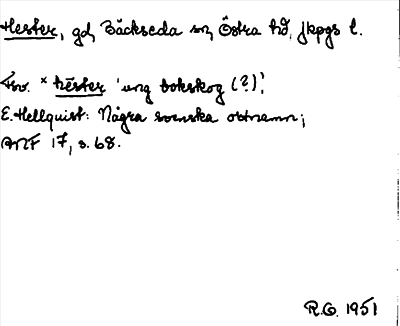 Hester, gd, Bäckseda sn, Östra hd, Jkpgs l.
Fsv. * hēster 'ung bokskog (?)',
E. Hellquist: Några svenska ortnamn;
ANF 17, s. 68.
R.G. 1951